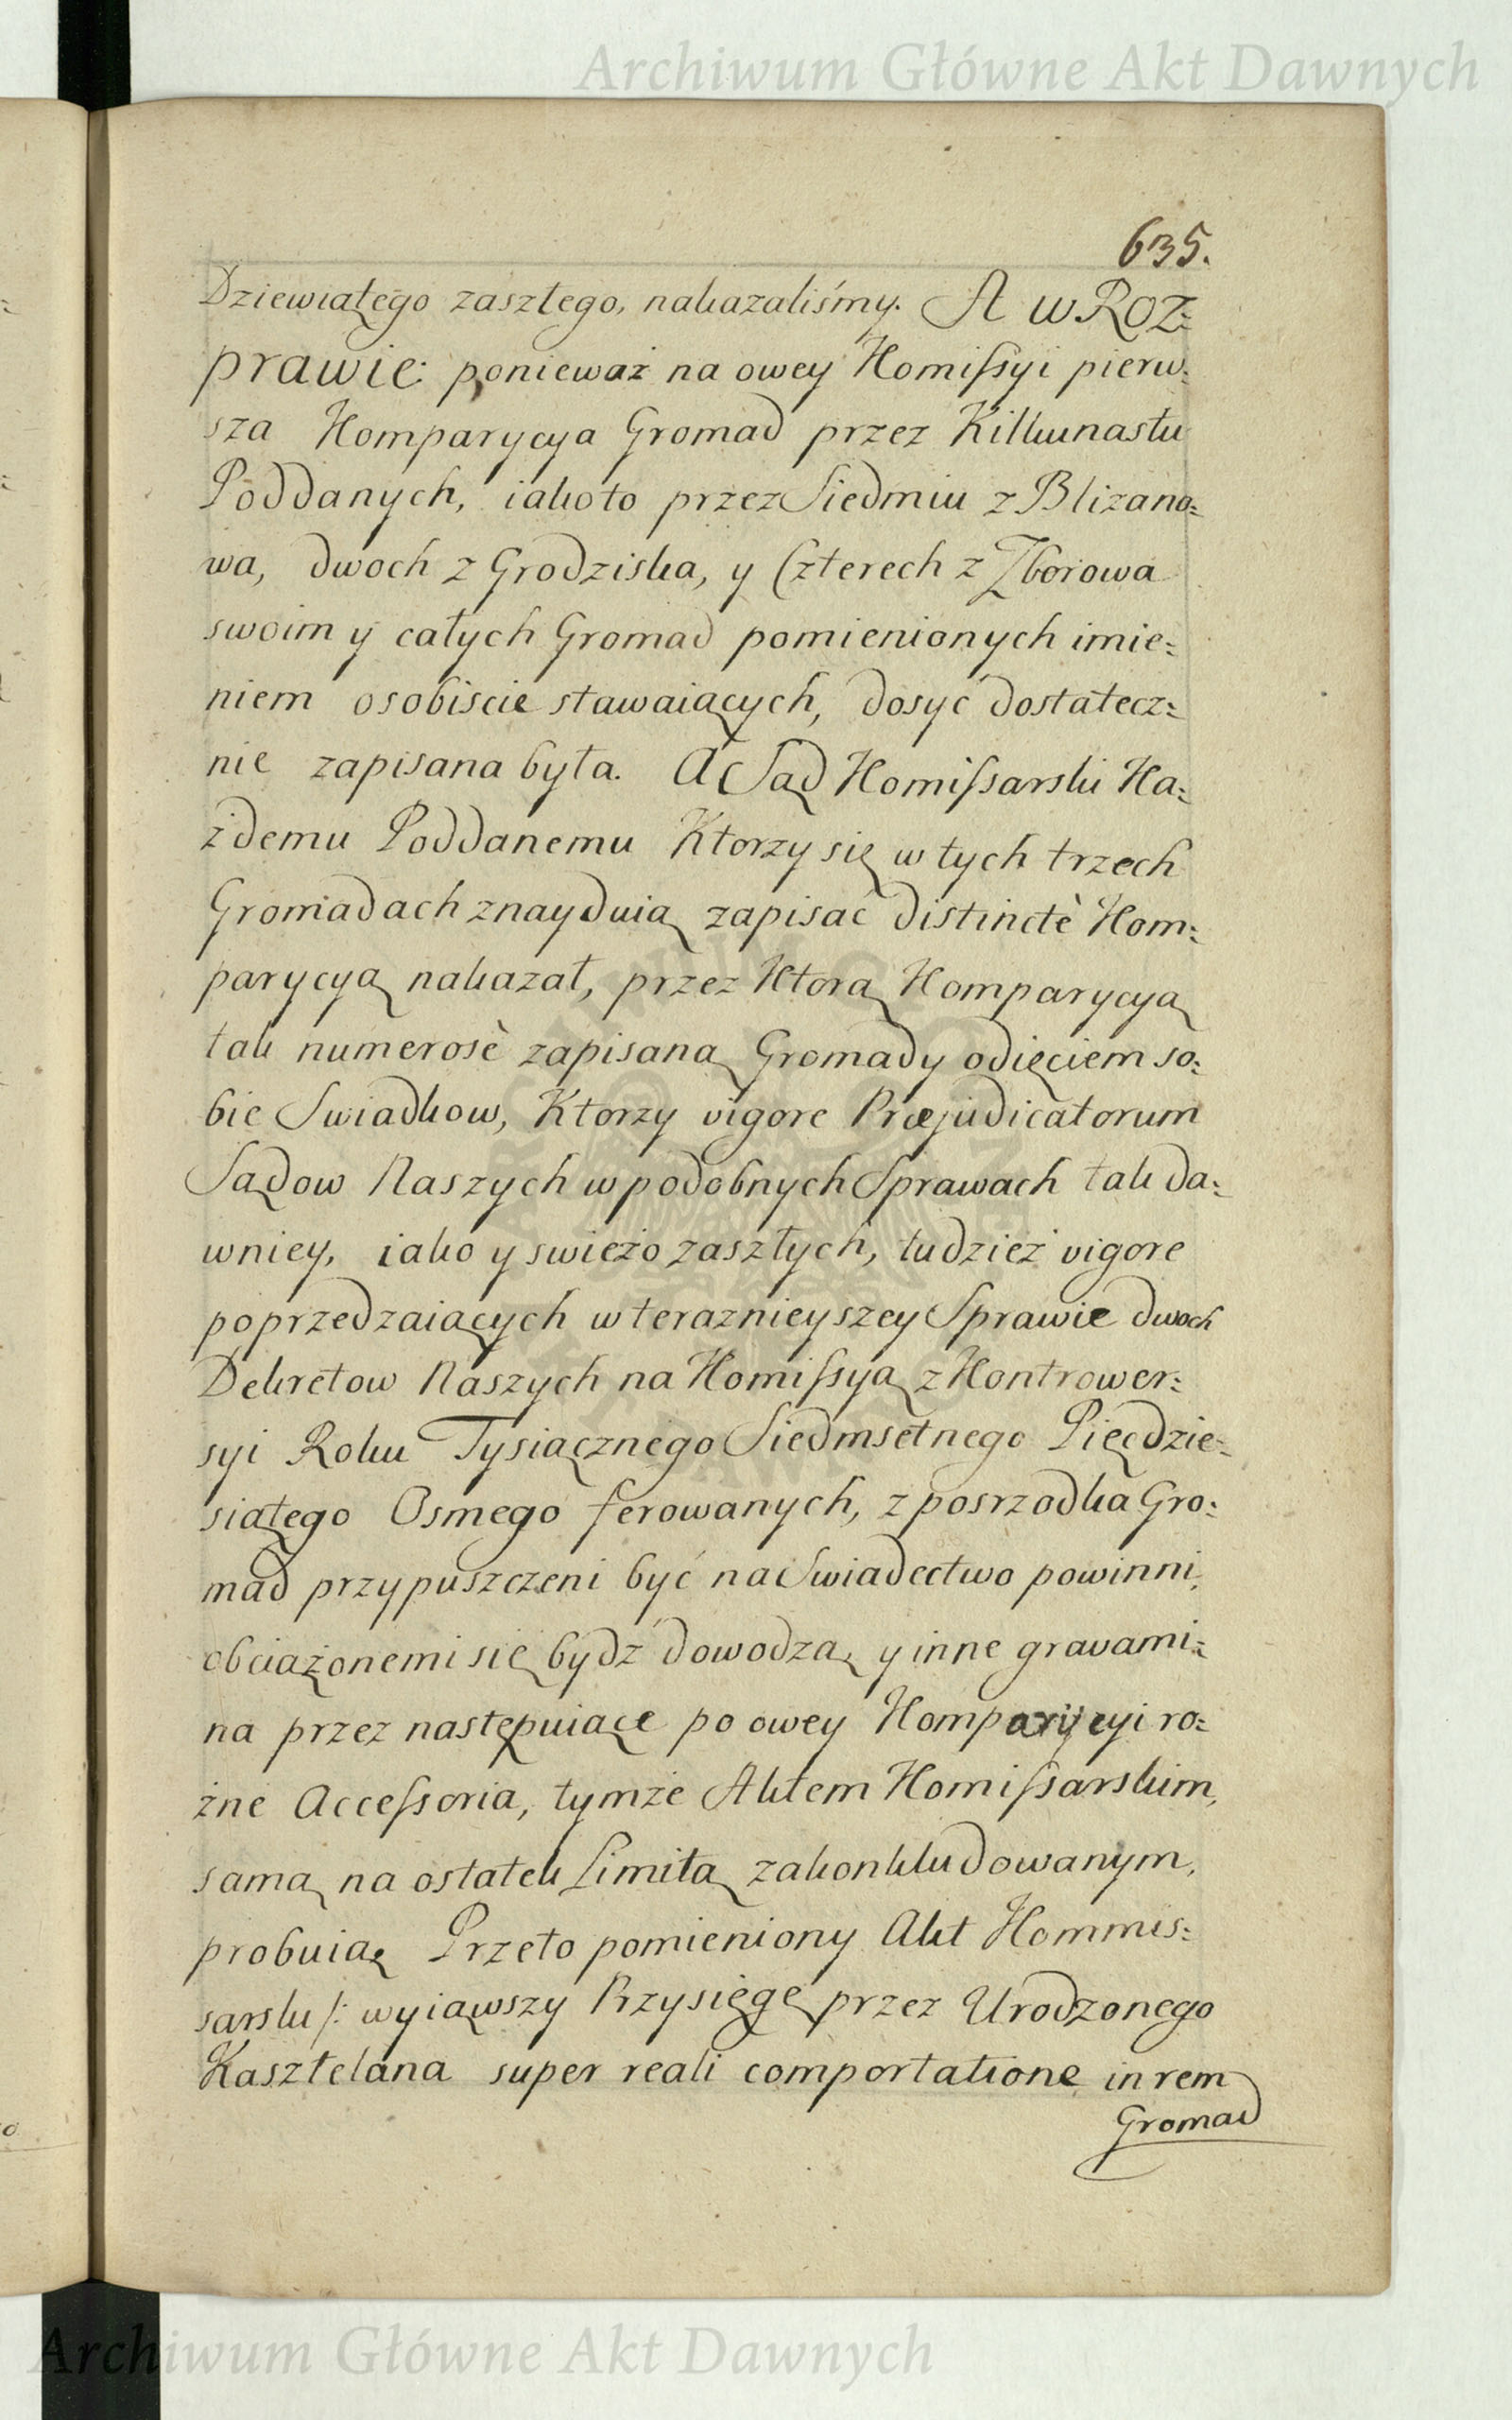 Archiwum Główne Akt Dawnych
635.
Dziewiątego zaszłego, nakazaliśmy. A w Roz:
prawie: ponieważ na owey Komissyi pierw:
sza Komparycya Gromad przez Kilkunastu
Poddanych, iakoto przez Siedmiu z Blizano:
wa, dwoch z Grodziska, y Czterech z Zborowa
swoim y całych Gromad pomienionych imie:
niem osobiscie stawaiących, dosyć dostatecz:
nie zapisana była. A Sąd Komissarski Ka:
żdemu Poddanemu Ktorzy się w tych trzech
Gromadach znayduią zapisać distinctè Kom:
parycyą nakazał, przez Ktorą Komparycyą
tak numerosè zapisaną Gromady odięciem so:
bie Swiadkow, Ktorzy vigore Præjudicatorum
Sądow Naszych w podobnych Sprawach tak da:
wniey, iako y swieżo zaszłych, tudzież vigore
poprzedzaiących w teraznieyszey Sprawie dwoch
Dekretow Naszych na Komissyą z Kontrower:
syi Roku Tysiącznego Siedmsetnego Pięcdzie:
siątego Osmego ferowanych, z posrzodka Gro:
mad przypuszczeni być na Swiadectwo powinni,
obciążonemi się bydź dowodzą, y inne gravami:
na przez następuiące po owey Komparycyi ro:
żne Accessoria, tymże Aktem Komissarskim,
samą na ostatek Limitą zakonkludowanym,
probuią. Przeto pomieniony Akt Kommis:
sarski /: wyiąwszy Przysięgę przez Urodzonego
Kasztelana super reali comportatione in rem
Gromad
Archiwum Główne Akt Dawnych